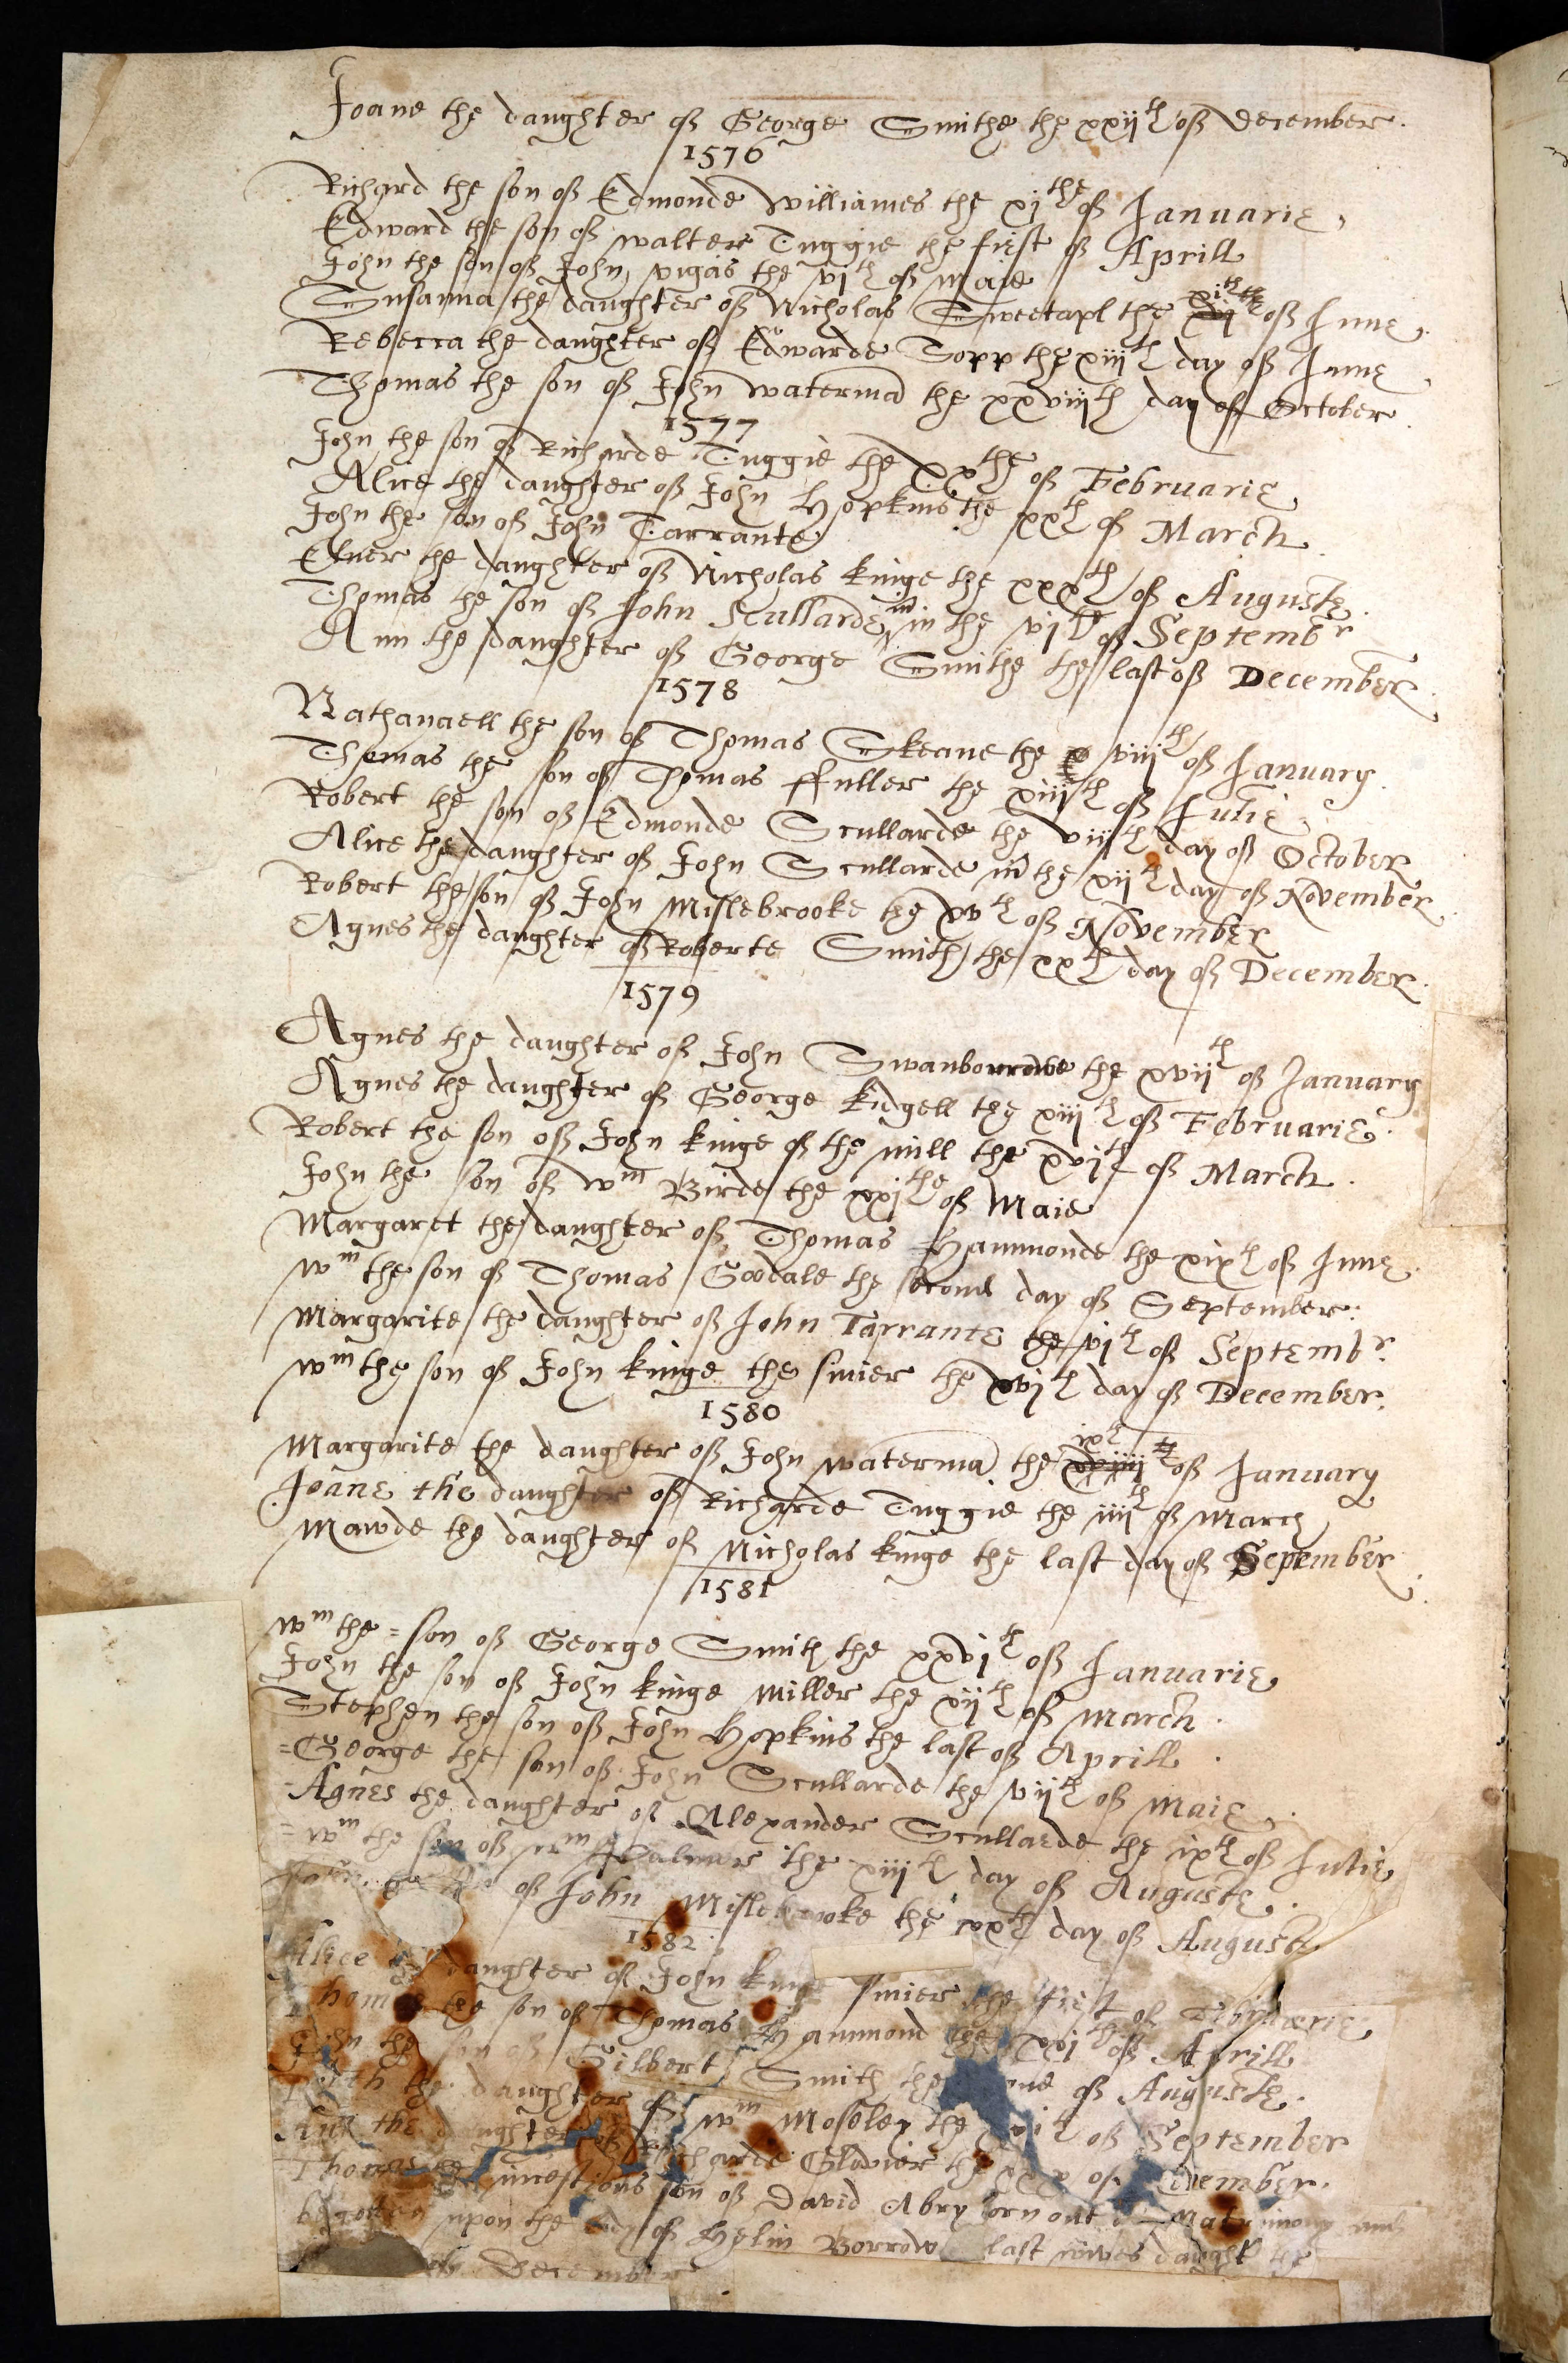 Joane the daughter of George Smithe the xxijth of December.
1576
Richard the son of Edmonde Williames the xjthe of Januarie,
Edward the son of walter Tuggie the first of Aprill
John the son of John vigas the vjth of Maie
Susanna the daughter of Nicholas Sweetapl the of June.
Rebecca the daughter of Edwarde Topp the xiijth day of June
Thomas the son of John waterma the xxviijth day of October.
1577
John the son of Richarde Tuggie the xxthe of Februarie
Alice the daughter of John Hopkins the xxth of March
John the son of John Tarrante
Elner the daughter of Nicholas kinge the xxxth of Auguste.
Thomas the son of John Scullarde in the vjth of Septembr
Ann the daughter of George Smithe the last of December.
1578
Nathanaell the son of Thomas Skeane the viijth of January.
Thomas the son of Thomas ffuller the xiijth of Julie
Robert the son of Edmonde Scullarde the viijth day of October
Alice the daughter of John Scullarde in the xijth day of November
Robert the son of John Mislebrooke the xvth of November
Agnes the daughter of Roberte Smith the xxth day of December.
1579
Agnes the daughter of John Swanborrowe the xviith of January
Agnes the daughter of George kidgell the xiijth of Februarie.
Robert the son of John kinge of the mill the xvjth of March.
John the son of wm Birde the xxjthe of Maie
Margaret the daughter of Thomas Hammonde the xixth of June.
wm the son of Thomas Goodale the second day of September.
Margarite the daughter of John Tarrante the vjth of Septembr.
wm the son of John kinge the smier the xvjth day of December.
1580
Margarite the daughter of John waterma the ixth of January
Joane the daughter of Richarde Tuggie the iiijth of March
Mawde the daughter of Nicholas kinge the last day of September.
1581
wm the = son of George Smith the xxvjth of Januarie
John the son of John kinge Miller the xijth of March.
Stephen the son of John Hopkins the last of Aprill.
=George the son of John Scullarde the vijth of Maie.
Agnes the daughter of Alexander Scullarde the ixth of Julie
= wm the son of wm Palmer the xiijth day of Auguste.
of John Mislebrooke the day of August
1582
Alice daughter of John kinge smier the first of Februarie
Thomas the son of Thomas Hammond the xvjth of Aprill
John the son of Gilbert Smith the of Auguste.
the daughter of wm Moseley the of September
Ann the daughter of Richarde Glovier the xxx of
Thomas incestious son of David Abry born out Matrimony and
begotten upon the body of Helin Borrow last wives daught the
December